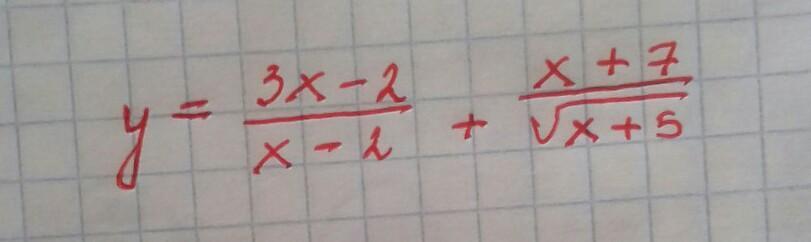 y = \frac{3x-2}{x-2} + \frac{x+7}{\sqrt{x+5}}